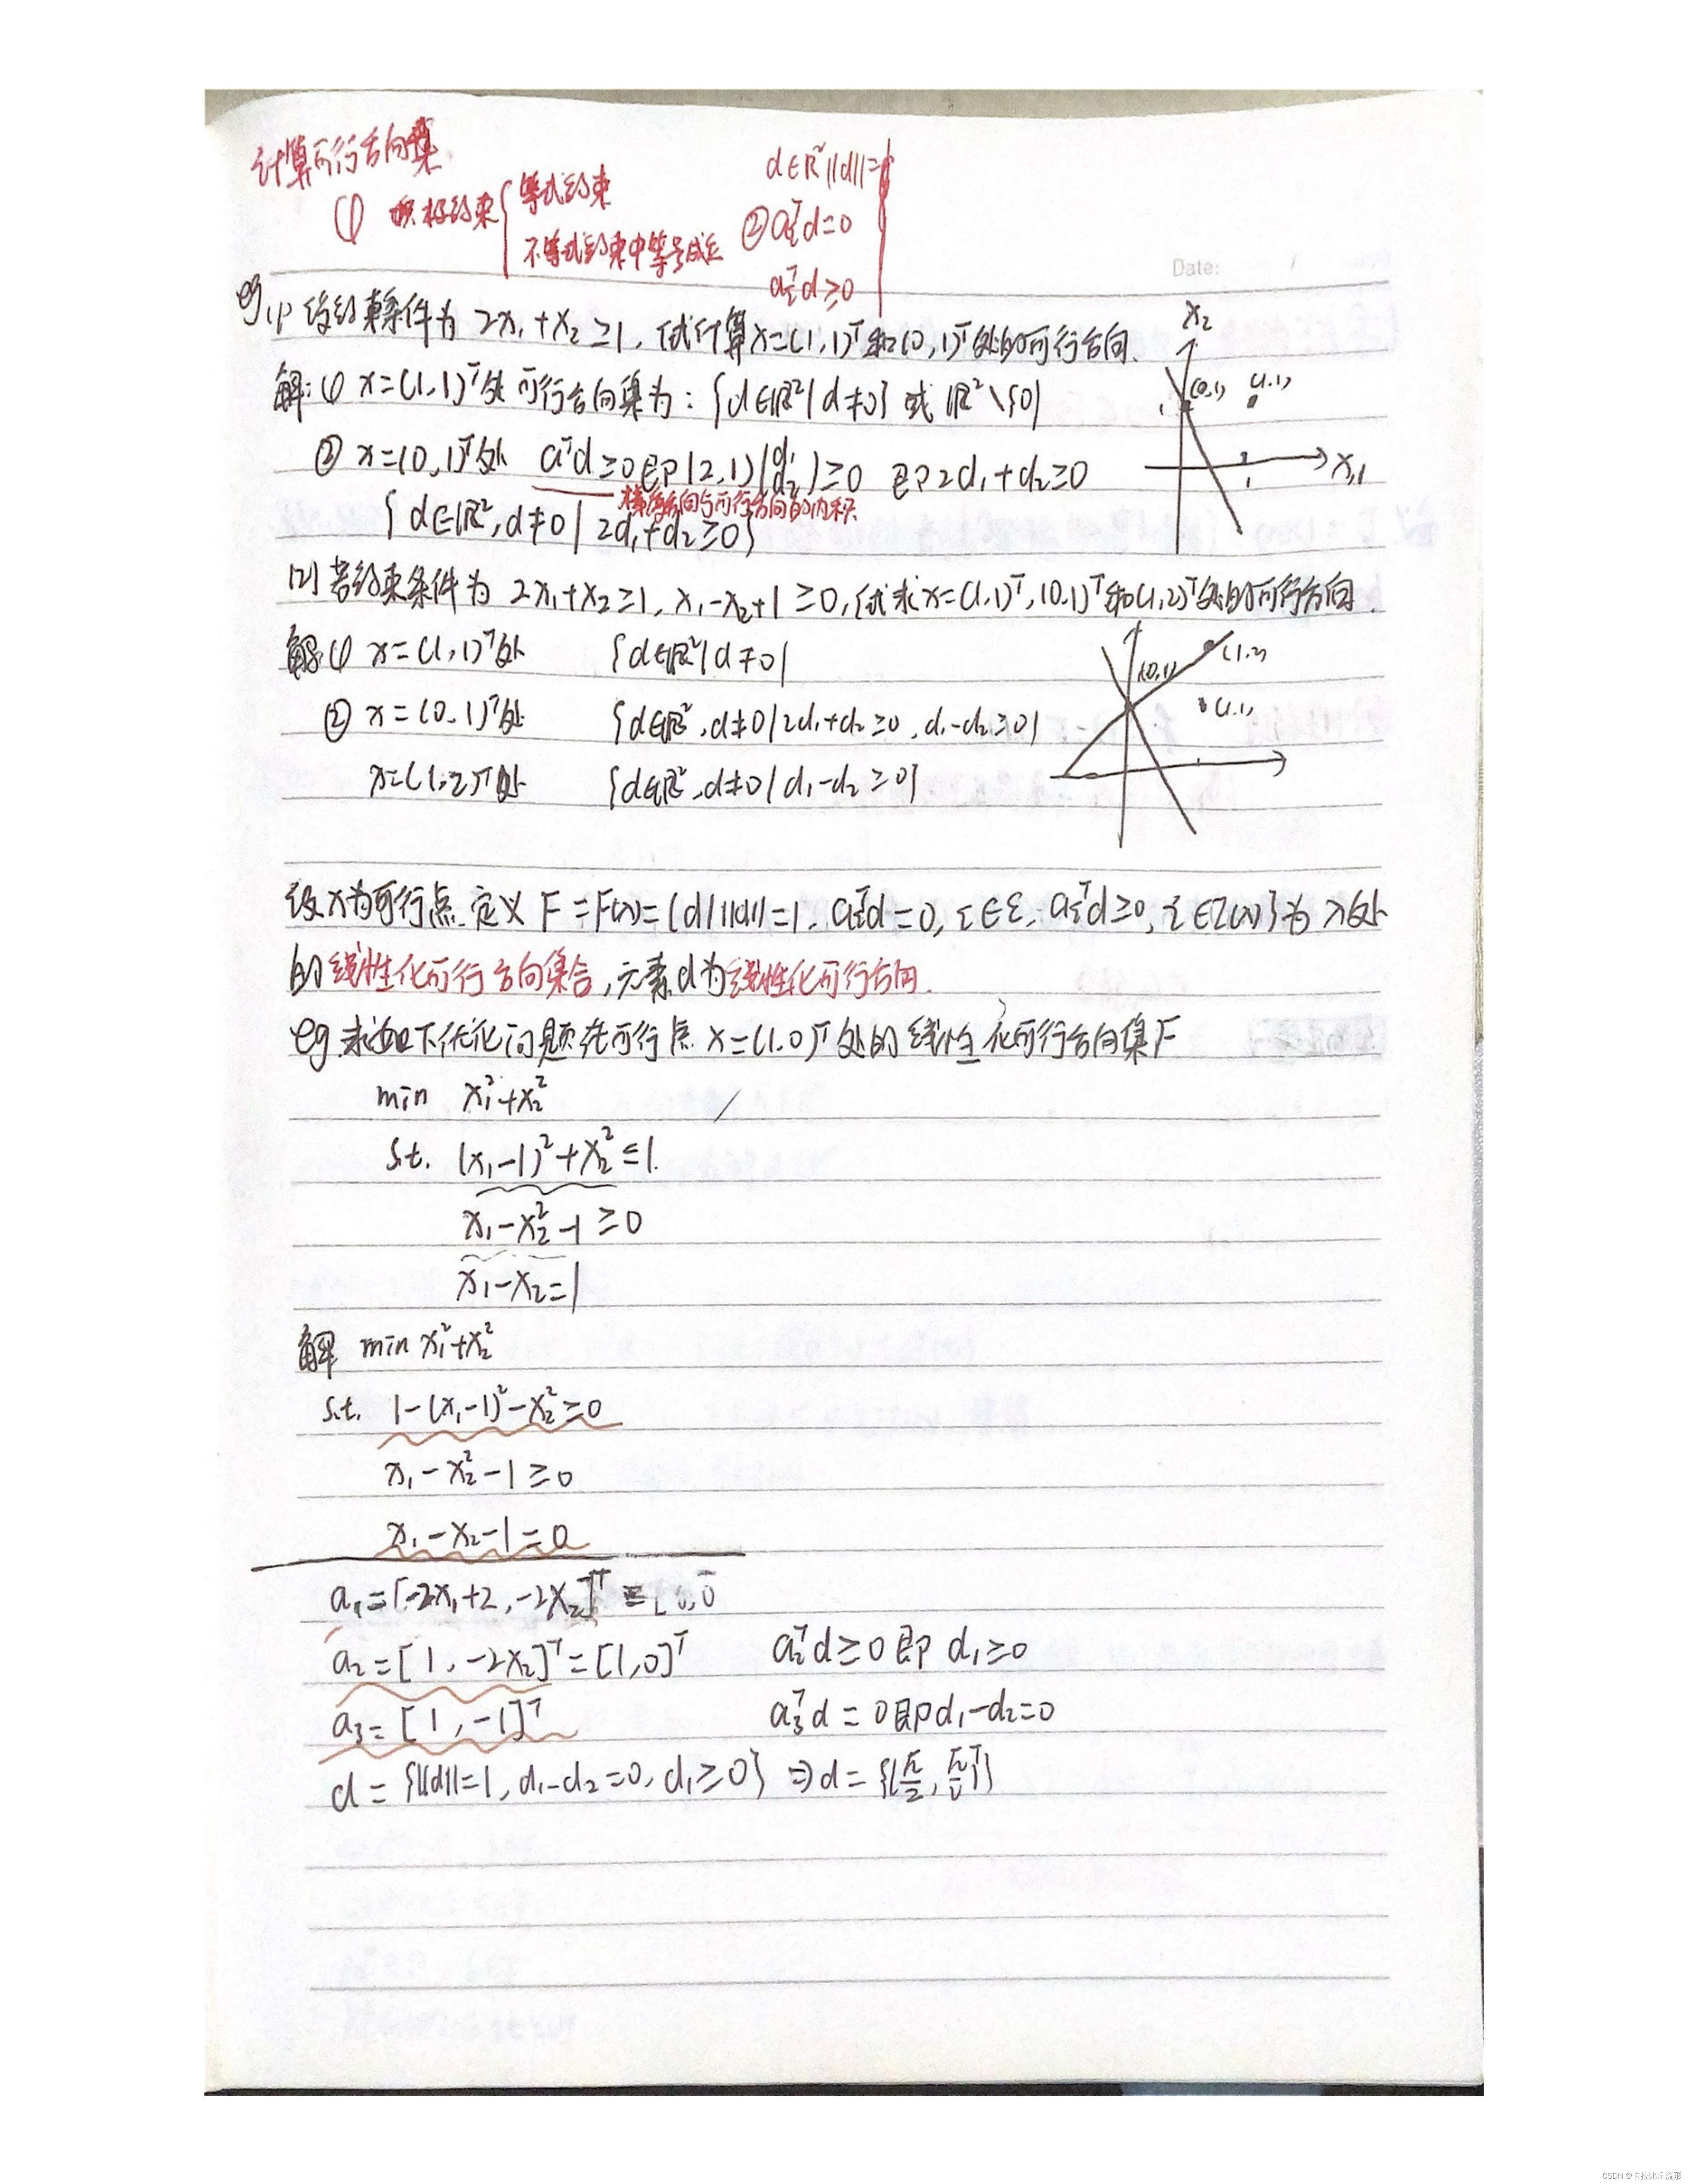 计算可行方向集
① 积极约束 { 等式约束
不等式约束中等号成立
d∈R² ||d||=1
② aᵢᵀd=0
aᵢᵀd≥0
Date:
eg. (1) 设约束条件为 2x₁+x₂≥1, 试计算x=(1,1)ᵀ和(0,1)ᵀ处的可行方向.
解: ① x=(1,1)ᵀ处 可行方向集为: {d∈R²| d≠0} 或 R²\{0}
② x=(0,1)ᵀ处 aᵀd≥0 即 (2,1)(d₁ d₂)≥0 即 2d₁+d₂≥0
梯度方向与可行方向的内积
{d∈R², d≠0 | 2d₁+d₂≥0}
x₂
(0,1) (1,1)
1
x₁
1
(2) 若约束条件为 2x₁+x₂≥1, x₁-x₂+1≥0, 试求x=(1,1)ᵀ, (0,1)ᵀ和(1,2)ᵀ处的可行方向.
解: ① x=(1,1)ᵀ处 {d∈R²| d≠0}
② x=(0,1)ᵀ处 {d∈R², d≠0 | 2d₁+d₂≥0, d₁-d₂≥0}
x=(1,2)ᵀ处 {d∈R², d≠0 | d₁-d₂≥0}
(1,2)
(0,1)
(1,1)
设x为可行点. 定义 F=F(x)={d| ||d||=1, aᵢᵀd=0, i∈ε, aᵢᵀd≥0, i∈I(x)} 为 x处
的线性化可行方向集合, 元素d为线性化可行方向.
eg 求如下优化问题在可行点 x=(1,0)ᵀ处的线性化可行方向集F
min x₁²+x₂²
s.t. (x₁-1)²+x₂²≤1.
x₁-x₂²-1≥0
x₁-x₂=1
解 min x₁²+x₂²
s.t. 1-(x₁-1)²-x₂²≥0
x₁-x₂²-1≥0
x₁-x₂-1=0
a₁=[-2x₁+2, -2x₂]ᵀ
a₂=[1, -2x₂]ᵀ=[1,0]ᵀ a₂ᵀd≥0 即 d₁≥0
a₃=[1, -1]ᵀ a₃ᵀd=0 即 d₁-d₂=0
d={||d||=1, d₁-d₂=0, d₁≥0} ⇒ d=
CSDN @卡拉比丘流形